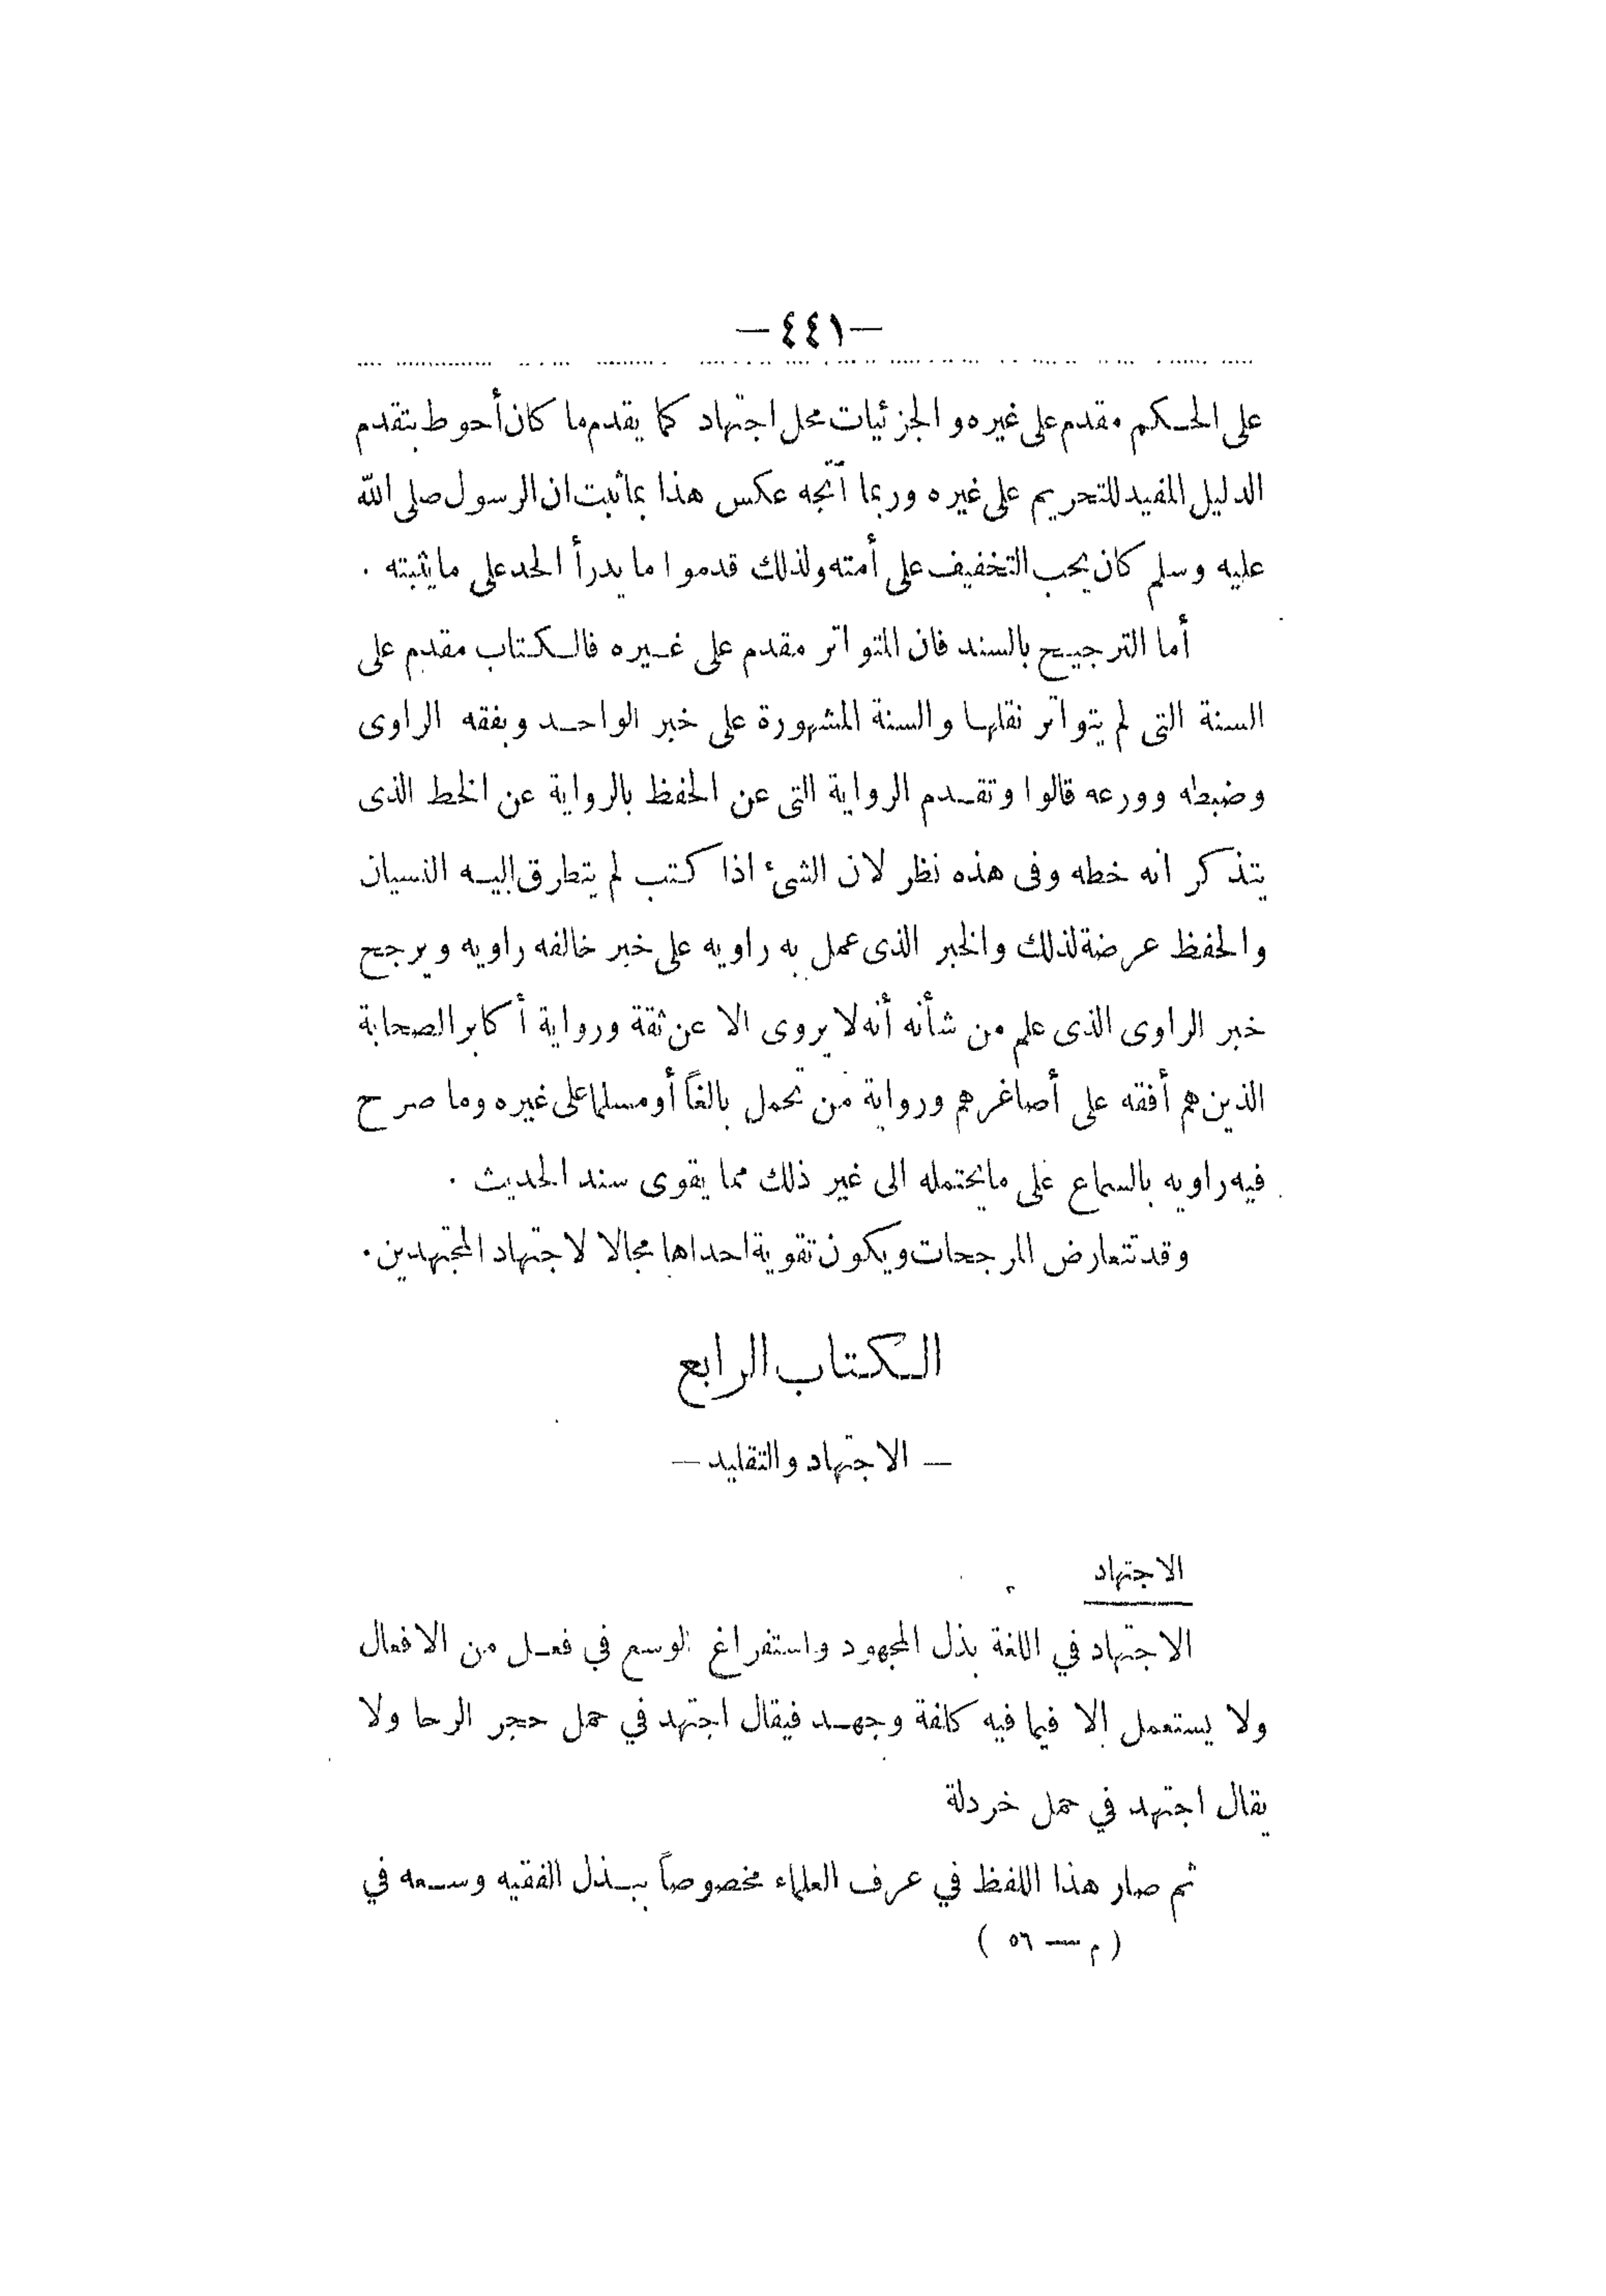 —٤٤١—
على الحكم مقدم على غيره والجزئيات محل اجتهاد كما يقدم ما كان أحوط بتقدم
الدليل المفيد للتحريم على غيره وربما اتجه عكس هذا بما ثبت ان الرسول صلى الله
عليه وسلم كان يحب التخفيف على أمته ولذلك قدموا ما يدرأ الحد على ما يثبته .
أما الترجيح بالسند فان المتواتر مقدم على غيره فالكتاب مقدم على
السنة التى لم يتواتر نقلها والسنة المشهورة على خبر الواحد وبفقه الراوى
وضبطه وورعه قالوا وتقدم الرواية التى عن الحفظ بالرواية عن الخط الذى
يتذكر انه خطه وفى هذه نظر لان الشئ اذا كتب لم يتطرق إليه النسيان
والحفظ عرضة لذلك والخبر الذى عمل به راويه على خبر خالفه راويه ويرجح
خبر الراوى الذى علم من شأنه أنه لا يروى الا عن ثقة ورواية أكابر الصحابة
الذين هم أفقه على أصاغرهم ورواية من تحمل بالغاً أو مسلما على غيره وما صرح
فيه راويه بالسماع على ما يحتمله الى غير ذلك مما يقوى سند الحديث .
وقد تتعارض المرجحات ويكون تقوية احداها مجالا لاجتهاد المجتهدين.
الكتاب الرابع
— الاجتهاد والتقليد —
الاجتهاد
الاجتهاد في اللغة بذل المجهود واستفراغ الوسع في فعل من الافعال
ولا يستعمل إلا فيما فيه كلفة وجهد فيقال اجتهد في حمل حجر الرحا ولا
يقال اجتهد في حمل خردلة
ثم صار هذا اللفظ في عرف العلماء مخصوصاً ببذل الفقيه وسعه في
( م — ٥٦ )